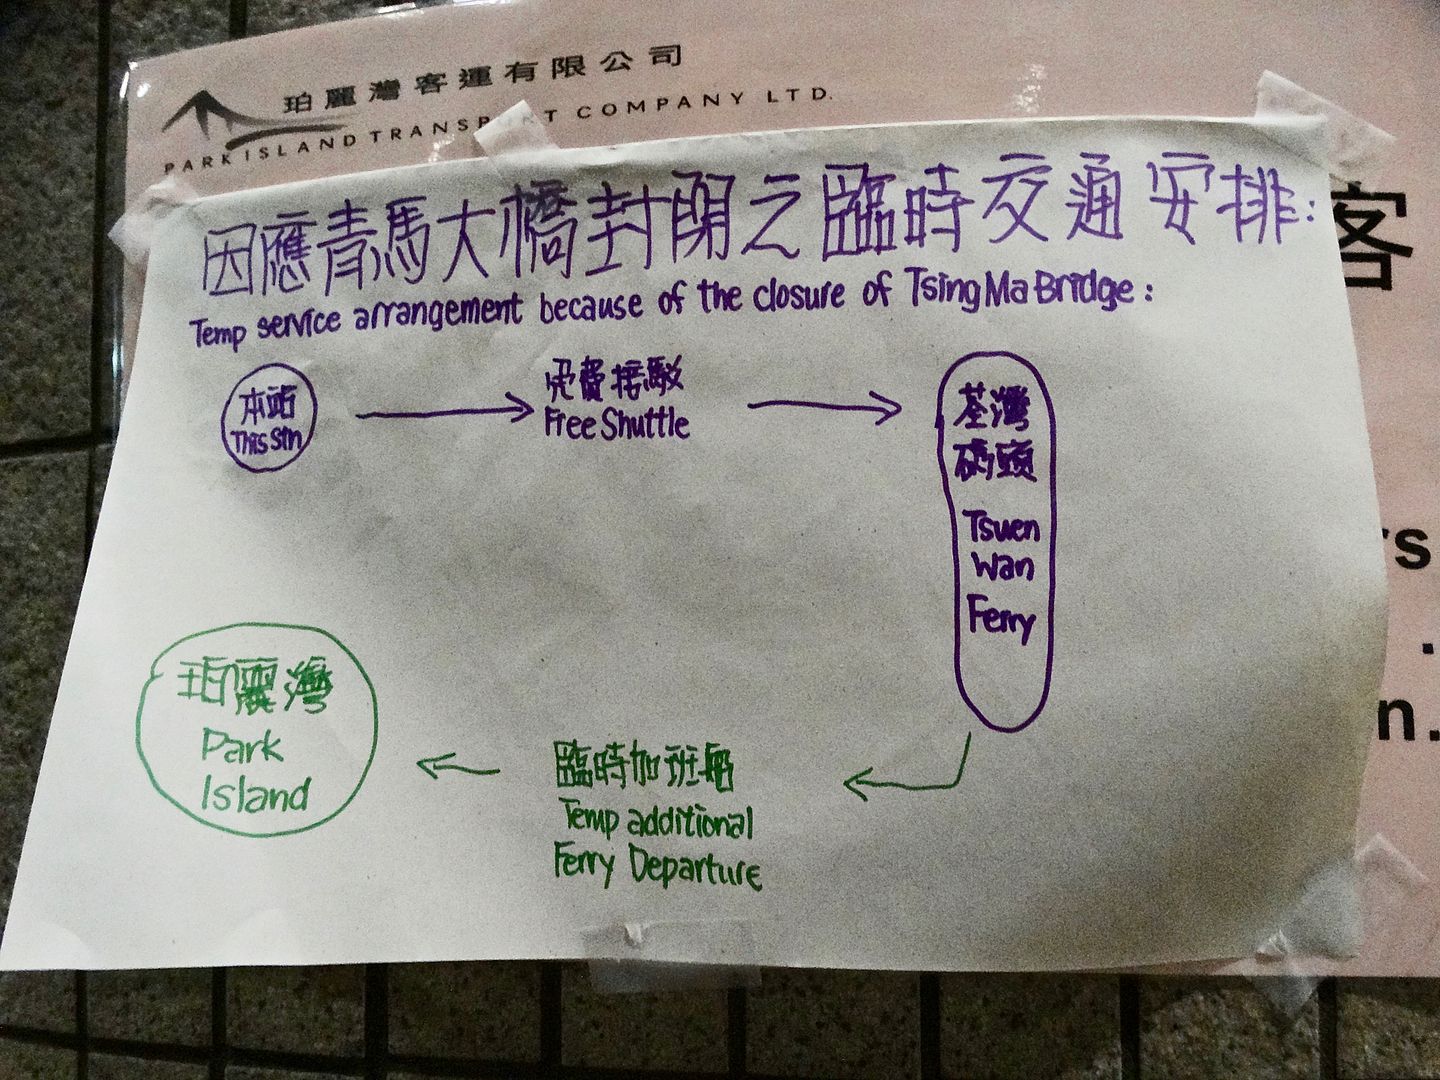 珀麗灣客運有限公司
PARK ISLAND TRANSP T COMPANY LTD.
客
因應青馬大橋封閉之臨時交通安排:
Temp service arrangement because of the closure of Tsing Ma Bridge:
本站
This Stn
免費接駁
Free Shuttle
荃灣
碼頭
Tsuen
Wan
Ferry
rs
.
n.
珀麗灣
Park
Island
臨時加班船
Temp additional
Ferry Departure